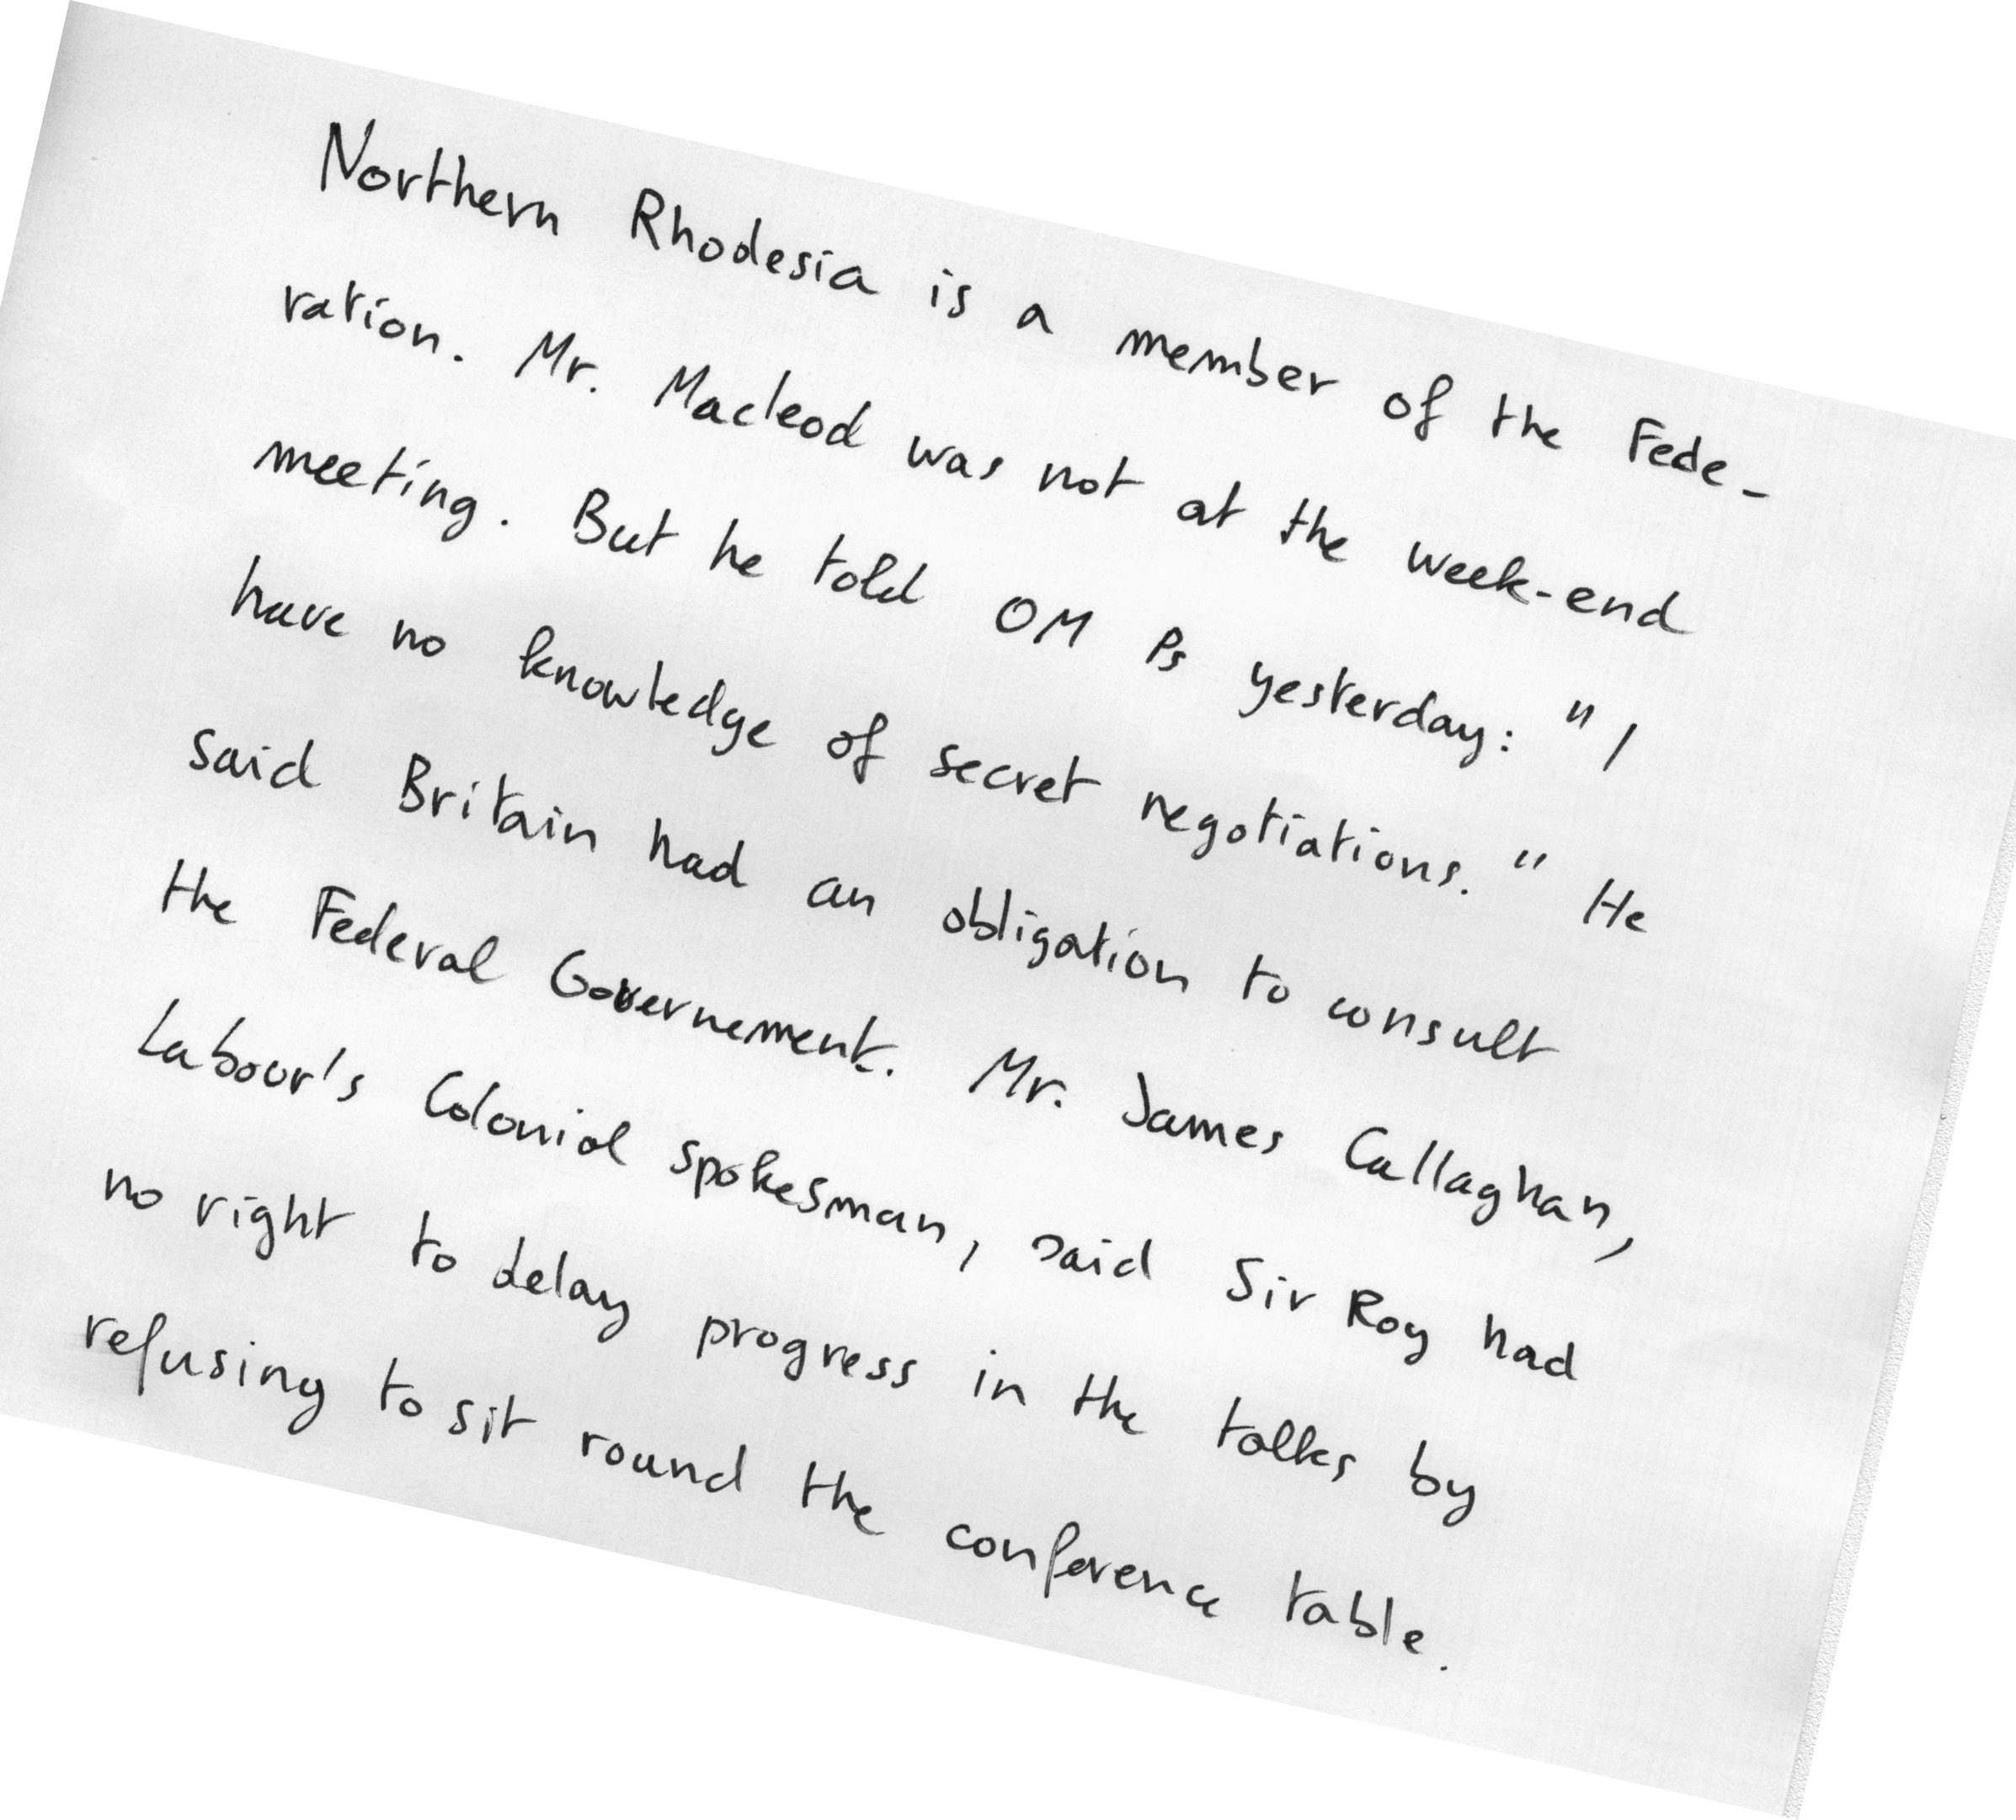 Northern Rhodesia is a member of the Fede-
ration. Mr. Macleod was not at the week-end
meeting. But he told OM Ps yesterday: "I
have no knowledge of secret negotiations." He
said Britain had an obligation to consult
the Federal Governement. Mr. James Callaghan,
Labour's Colonial spokesman, said Sir Roy had
no right to delay progress in the talks by
refusing to sit round the conference table.